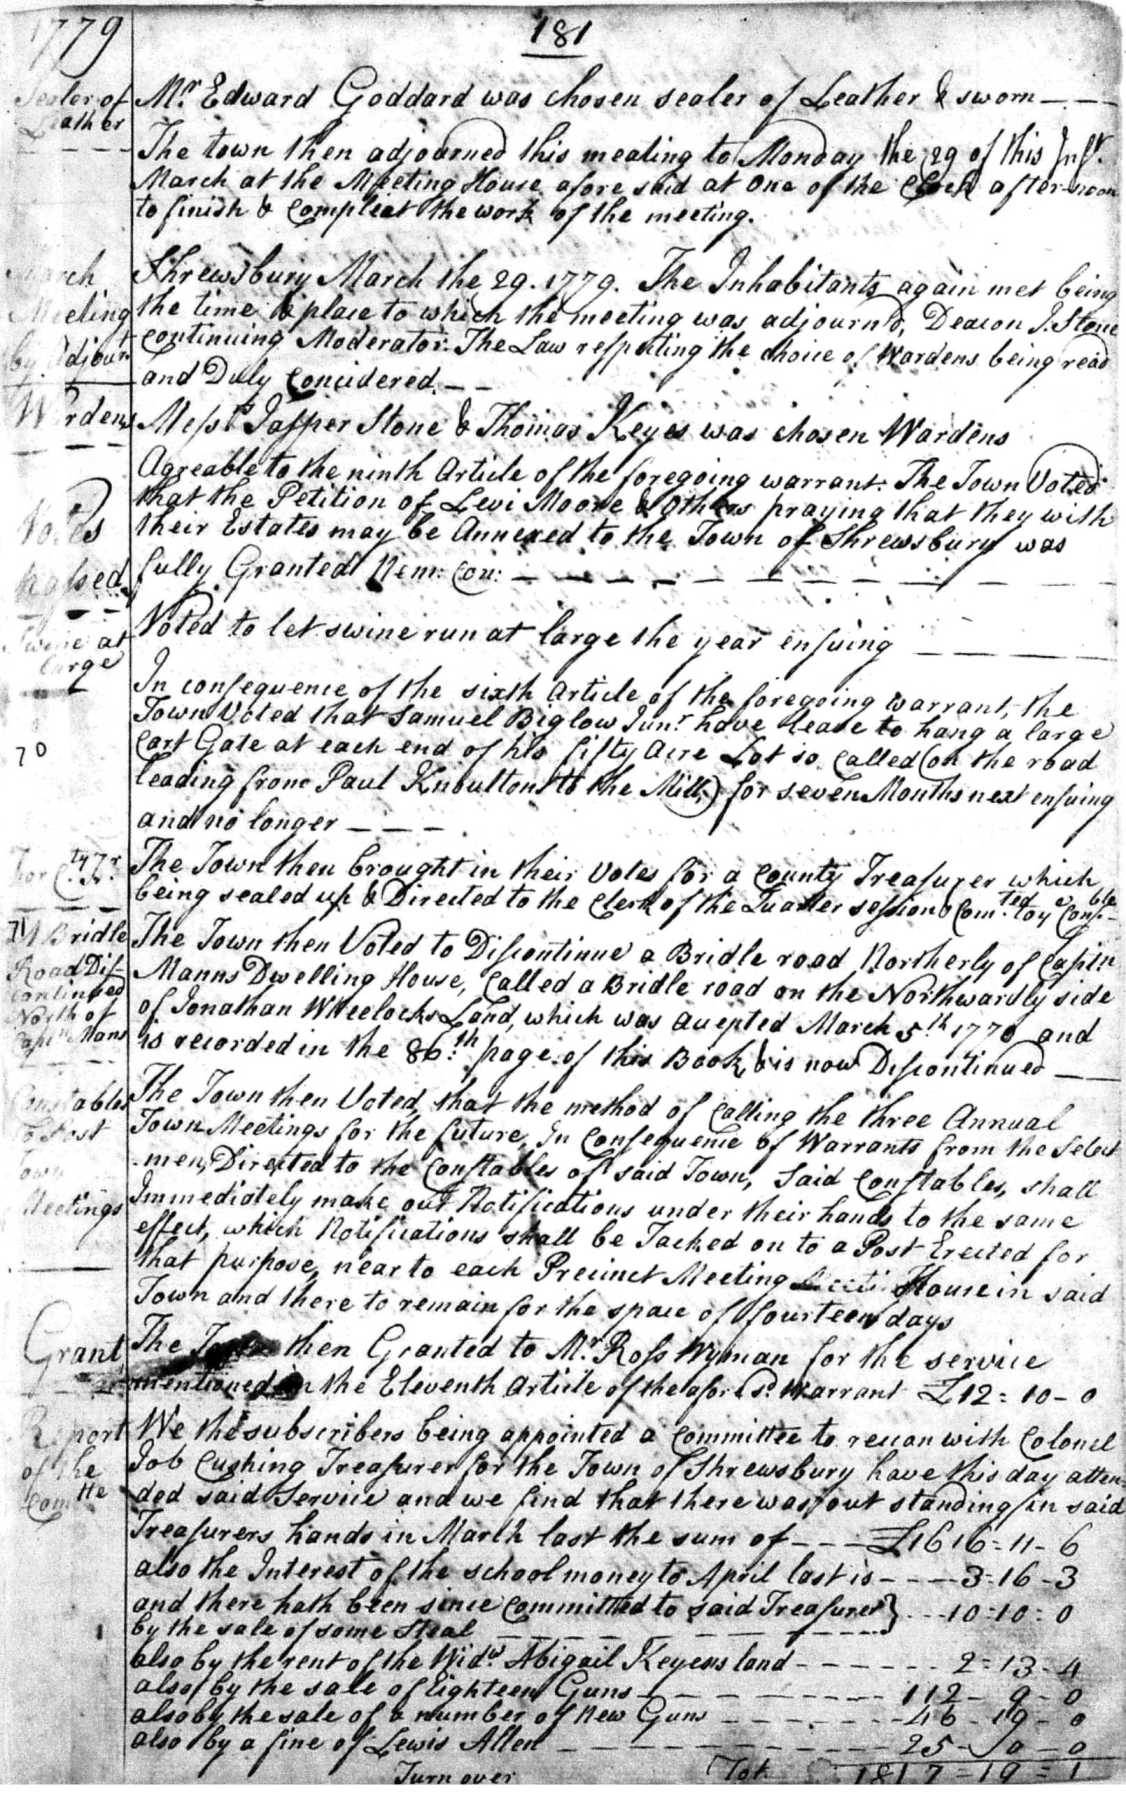 1779
181
Sealer of
Leather
Mr. Edward Goddard was chosen sealer of Leather & sworn
The town then adjourned this meating to Monday the 29 of this Inst.
March at the Meeting House afore said at one of the Clock afternoon
to finish & compleat the work of the meeting.
March
Meeting
by Adjourn
Shrewsbury March the 29. 1779. The Inhabitants again met being
the time & place to which the meeting was adjourn'd, Deacon J. Stone
continuing Moderator. The Law respecting the choice of Wardens being read
and Duly Concidered.
Wardens
Messrs Jasper Stone & Thomas Keyes was chosen Wardens
Votes
passed
Agreable to the ninth Article of the foregoing warrant. The Town Voted
that the Petition of Levi Moore & Others praying that they with
their Estates may be Annexed to the Town of Shrewsbury was
fully Granted Nem: Con:
Swine at
large
Voted to let swine run at large the year ensuing
70
In consequence of the sixth Article of the foregoing warrant, the
Town Voted that Samuel Biglow Junr. have leave to hang a large
Cart Gate at each end of his fifty Acre Lot so called (on the road
leading from Paul Knoultons to the Mill,) for seven Months next ensuing
and no longer
For Cty Tr.
The Town then brought in their Votes for a County Treasurer which
being sealed up & Directed to the Clerk of the Quarter sessions Comted to a Consble
71
A Bridle
Road Dis-
continued
North of
Captn Mans
The Town then Voted to Discontinue a Bridle road Northerly of Captn
Manns Dwelling House, called a Bridle road on the Northwardly side
of Jonathan Wheelocks Land, which was accepted March 5th 1770 and
is recorded in the 86th page of this Book, & is now Discontinued
Constables
to Post
Town
Meetings
The Town then Voted, that the method of calling the three Annual
Town Meetings for the future, In Consequence of Warrants from the Select
-men, Directed to the Constables of said Town, said Constables, shall
Immediately make out Notifications under their hands to the same
effect, which Notifications shall be Tacked on to a Post Erected for
that purpose, near to each Precinct Meeting House in said
Town and there to remain for the space of fourteen days
Grant
The Town then Granted to Mr. Ross Wyman for the service
mentioned in the Eleventh Article of the afores'd. Warrant £12=10-0
Report
of the
Comtte
We the subscribers being appointed a committee to recon with Colonel
Job Cushing Treasurer for the Town of Shrewsbury have this day atten-
ded said Service and we find that there was out standing in said
Treasurers hands in March last the sum of £1616=11-6
also the Interest of the school money to April last is 3=16-3
and there hath been since Committed to said Treasurer } 10=10=0
by the sale of some Steal
also by the rent of the Widw. Abigail Keyess land 2=13-4
also by the sale of Eighteen Guns 112-9-0
also by the sale of a number of New Guns 46-19-0
also by a fine of Lewis Allen 25-0-0
Turn over Tot. 1817=19=1